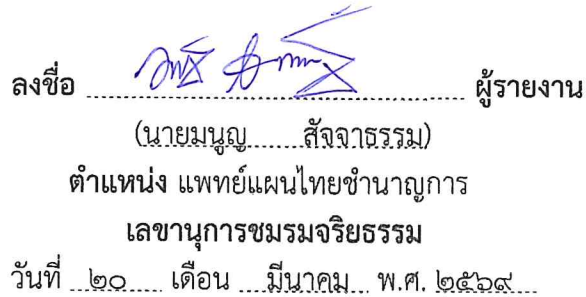 ลงชื่อ ........................................ ผู้รายงาน
(นายมนูญ......สัจจาธรรม)
ตำแหน่ง แพทย์แผนไทยชำนาญการ
เลขานุการชมรมจริยธรรม
วันที่ ๒๐ เดือน มีนาคม พ.ศ. ๒๕๖๙